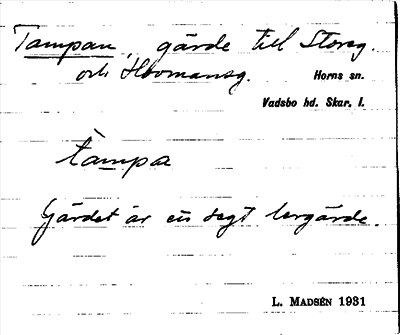 Tampan, gärde till Storeg.
och Hovmansg. Horns sn.
Vadsbo hd. Skar. l.
tàmpa
Gärdet är en segt lergärde.
L. MADSÉN 1931